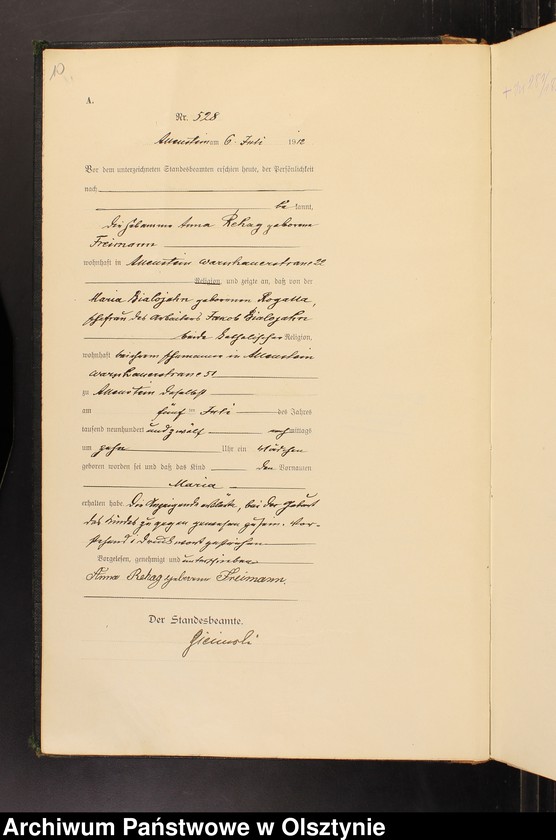 10
A.
Nr. 528
Allenstein am 6. Juli 1912
Vor dem unterzeichneten Standesbeamten erschien heute, der Persönlichkeit
nach
be kannt,
die Hebamme Anna Rehag geborene
Freimann
wohnhaft in Allenstein Warschauerstrasse 22
Religion, und zeigte an, daß von der
Maria Bialojahn geborenen Rogalla,
Ehefrau des Arbeiters Jakob Bialojahn
beide katholischer Religion,
wohnhaft bei ihrem Ehemanne in Allenstein
Warschauerstrasse 51
zu Allenstein daselbst
am fünf ten Juli des Jahres
tausend neunhundert und zwölf nach mittags
um zehn Uhr ein Mädchen
geboren worden sei und daß das Kind den Vornamen
Maria
erhalten habe. Die Anzeigende erklärte, bei der Geburt
des Kindes zugegen gewesen zu sein. Vor-
stehend 1 Druckwort gestrichen
Vorgelesen, genehmigt und unterschrieben
Anna Rehag geborene Freimann.
Der Standesbeamte.
Archiwum Państwowe w Olsztynie